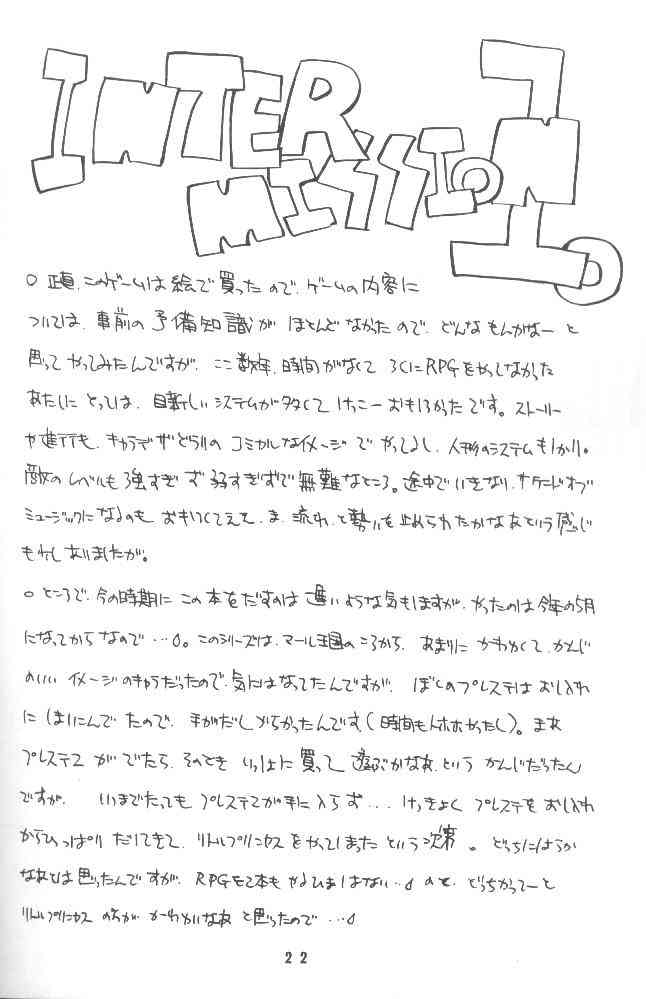 INTERMISSION
○正直、このゲームは絵で買ったので、ゲームの内容に
ついては、事前の予備知識がほとんどなかったので、どんなもんかなーと
思ってやってみたんですが、ここ数年、時間がなくてろくにRPGをやってなかった
あたしにとっては、目新しいシステムが多くてけっこーおもしろかったです。ストーリー
や進行も、キャラデザどおりのコミカルなイメージでやってるし、人形のシステムも
敵のレベルも強すぎず弱すぎずで無難なところ。途中でいきなり、サウンドオブ
ミュージックになるのも おもしろくてええと、ま、流れと勢いを止められたかなあという感じ
も少しありましたが。
○ところで、今の時期にこの本をだすのは遅いような気もしますが、やったのは今年の5月
になってからなので…。このシリーズは、マール王国のころから、あまりにかわいくて、かんじ
のいいイメージのキャラだったので、気にはなってたんですが、ぼくのプレステはおし入れ
にはいってたので、手がだしづらかったんです(時間もなかったし)。まあ
プレステ2がでたら、そのときいっしょに買って遊ぶかなあ、というかんじだったん
ですが、いまでたってもプレステ2が手に入らず…けっきょくプレステをおし入れ
からひっぱりだしてきて、リトルプリンセスをやってしまったという次第。どっちにしようか
なあとは思ったんですが、RPGを2本もやるひまはない…ので、どっちかってーと
リトルプリンセスの方が、かーわいいなあと思ったので…
22